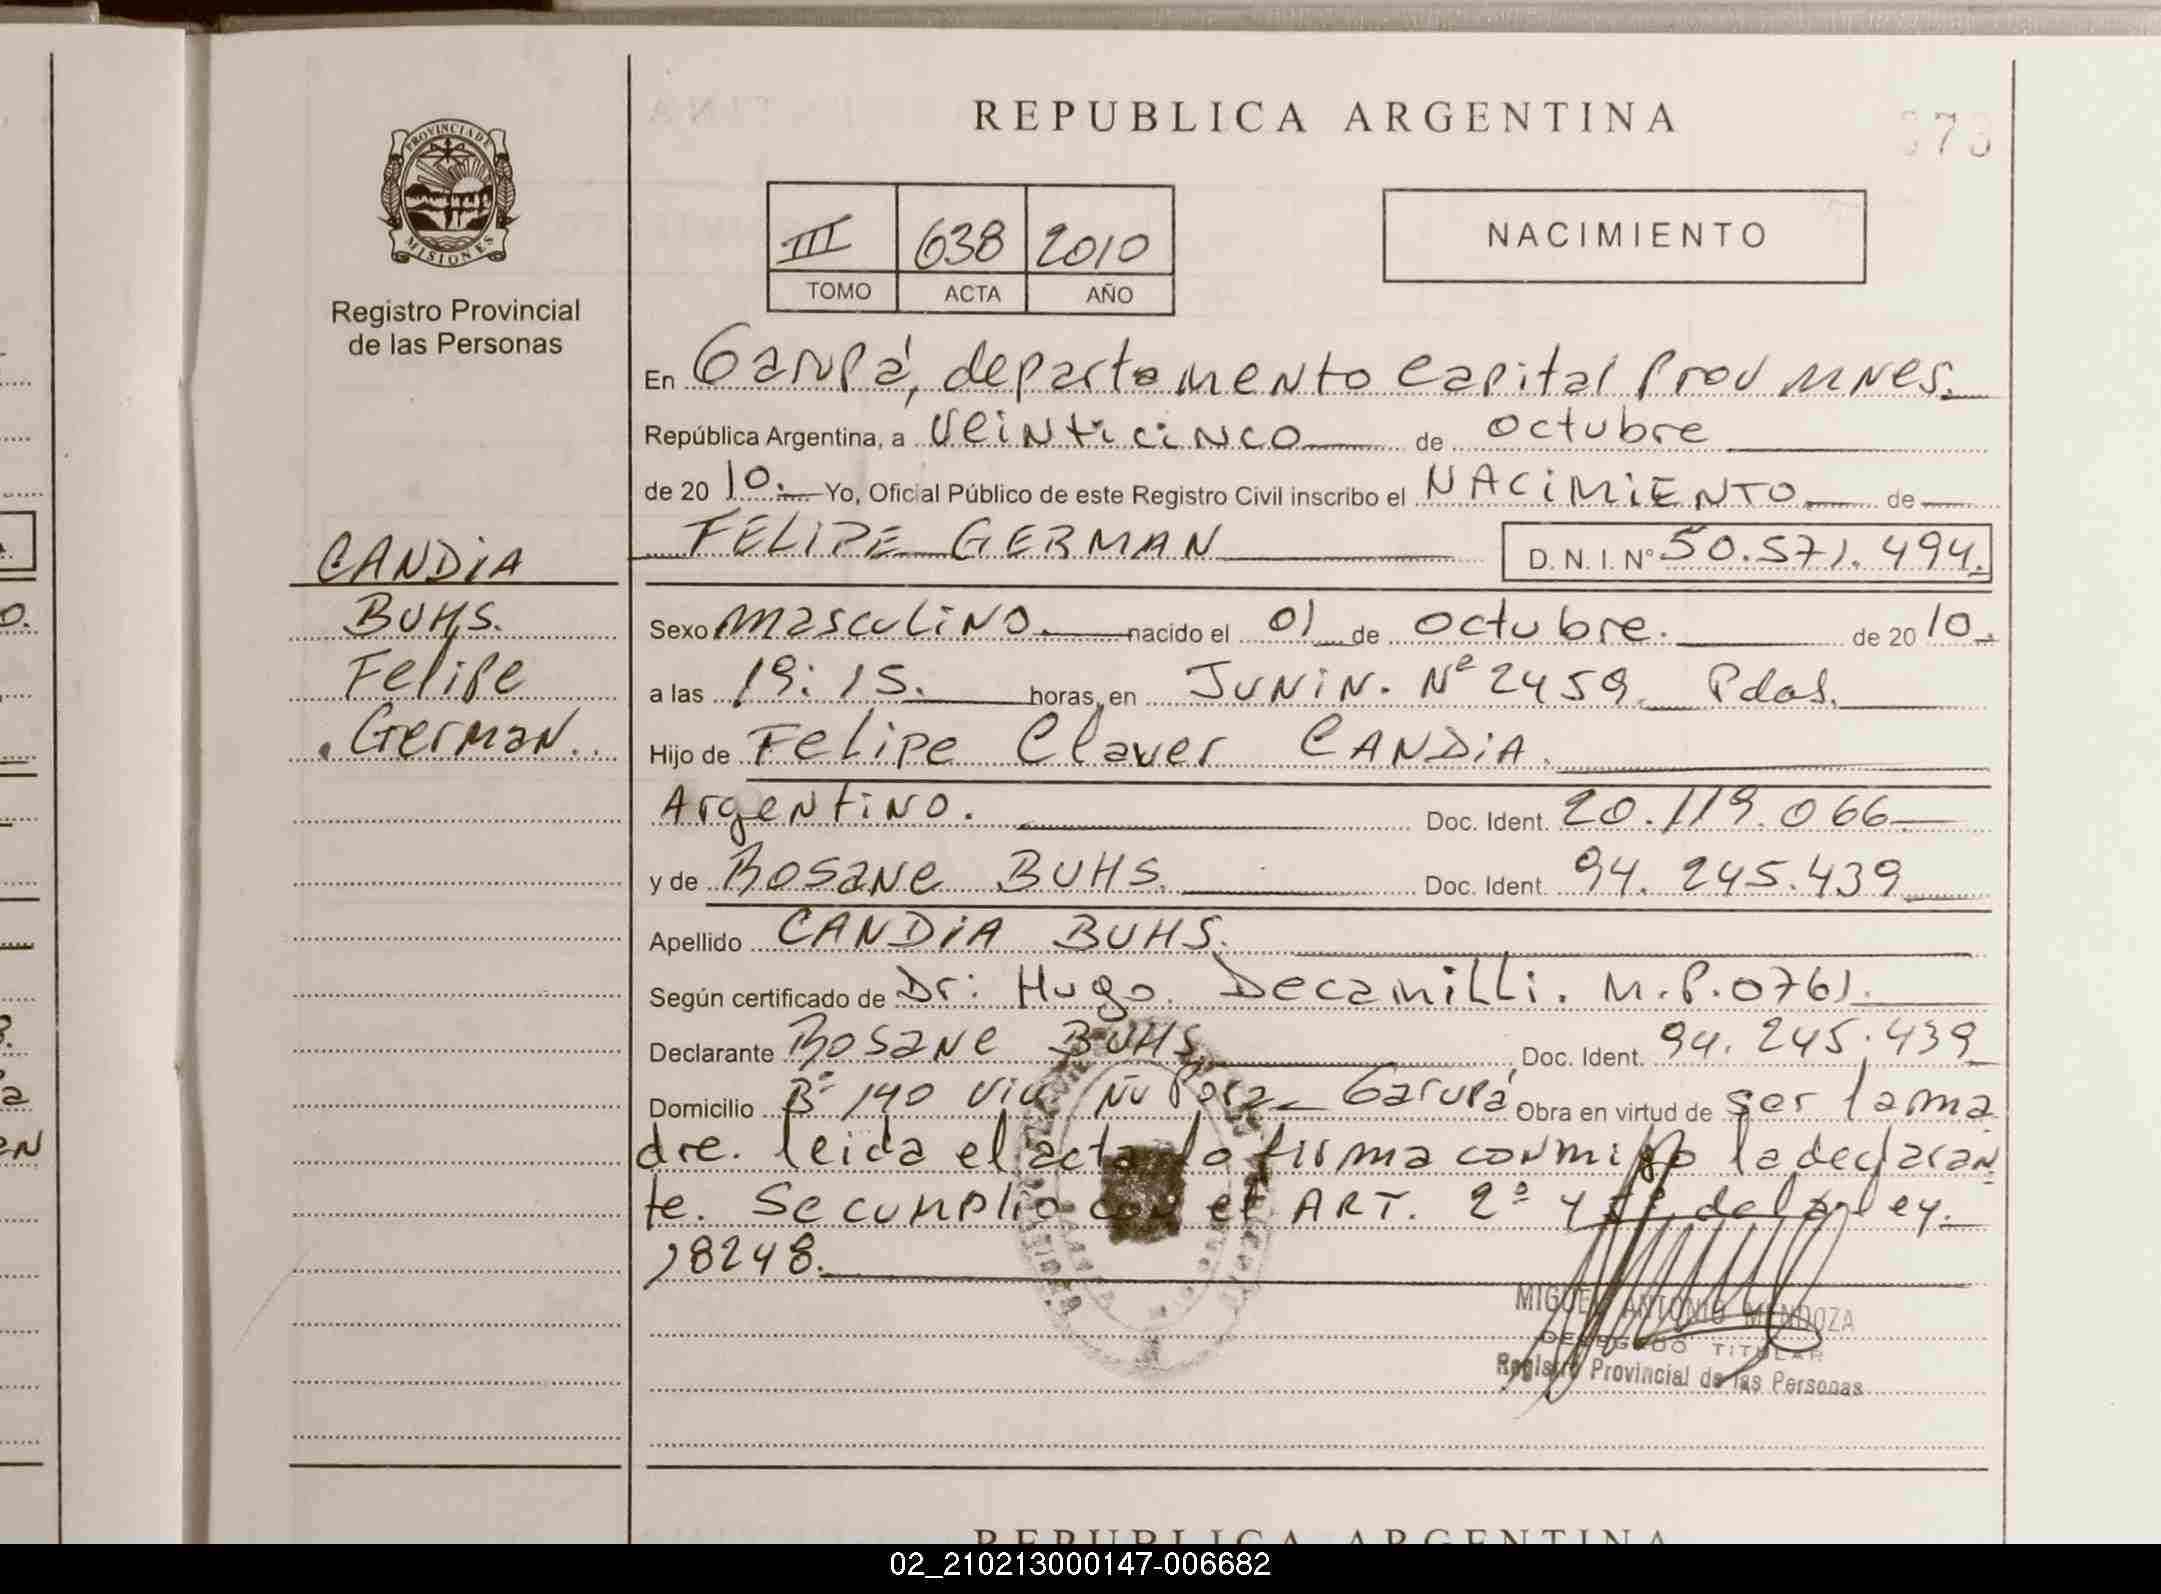 REPUBLICA ARGENTINA
373
PROVINCIA DE
MISIONES
Registro Provincial
de las Personas
III 638 2010
TOMO ACTA AÑO
NACIMIENTO
En Garupá, departamento Capital Prov Mnes.
República Argentina, a veinticinco de octubre
de 2010. Yo, Oficial Público de este Registro Civil inscribo el NACIMIENTO de
FELIPE GERMAN D. N. I. Nº 50.571.494.
CANDIA
BUHS.
Felipe
German.
Sexo masculino. nacido el 01 de octubre. de 2010.
a las 19:15. horas, en JUNIN. Nº 2459. Pdas.
Hijo de Felipe Claver CANDIA.
Argentino. Doc. Ident. 20.119.066
y de Rosane BUHS. Doc. Ident. 94.245.439
Apellido CANDIA BUHS.
Según certificado de Dr: Hugo Decamilli. M.P.0761.
Declarante Rosane BUHS Doc. Ident. 94.245.439
Domicilio Bº 140 Viv. Ñu Pora Garupá Obra en virtud de ser la ma
dre. leida el acta lo firma conmigo la declaran
te. Se cumplio con el ART. 2º y de la ley.
18248.
MIGUEL ANTONIO MENDOZA
DELEGADO TITULAR
Registro Provincial de las Personas
REPUBLICA ARGENTINA
02_210213000147-006682